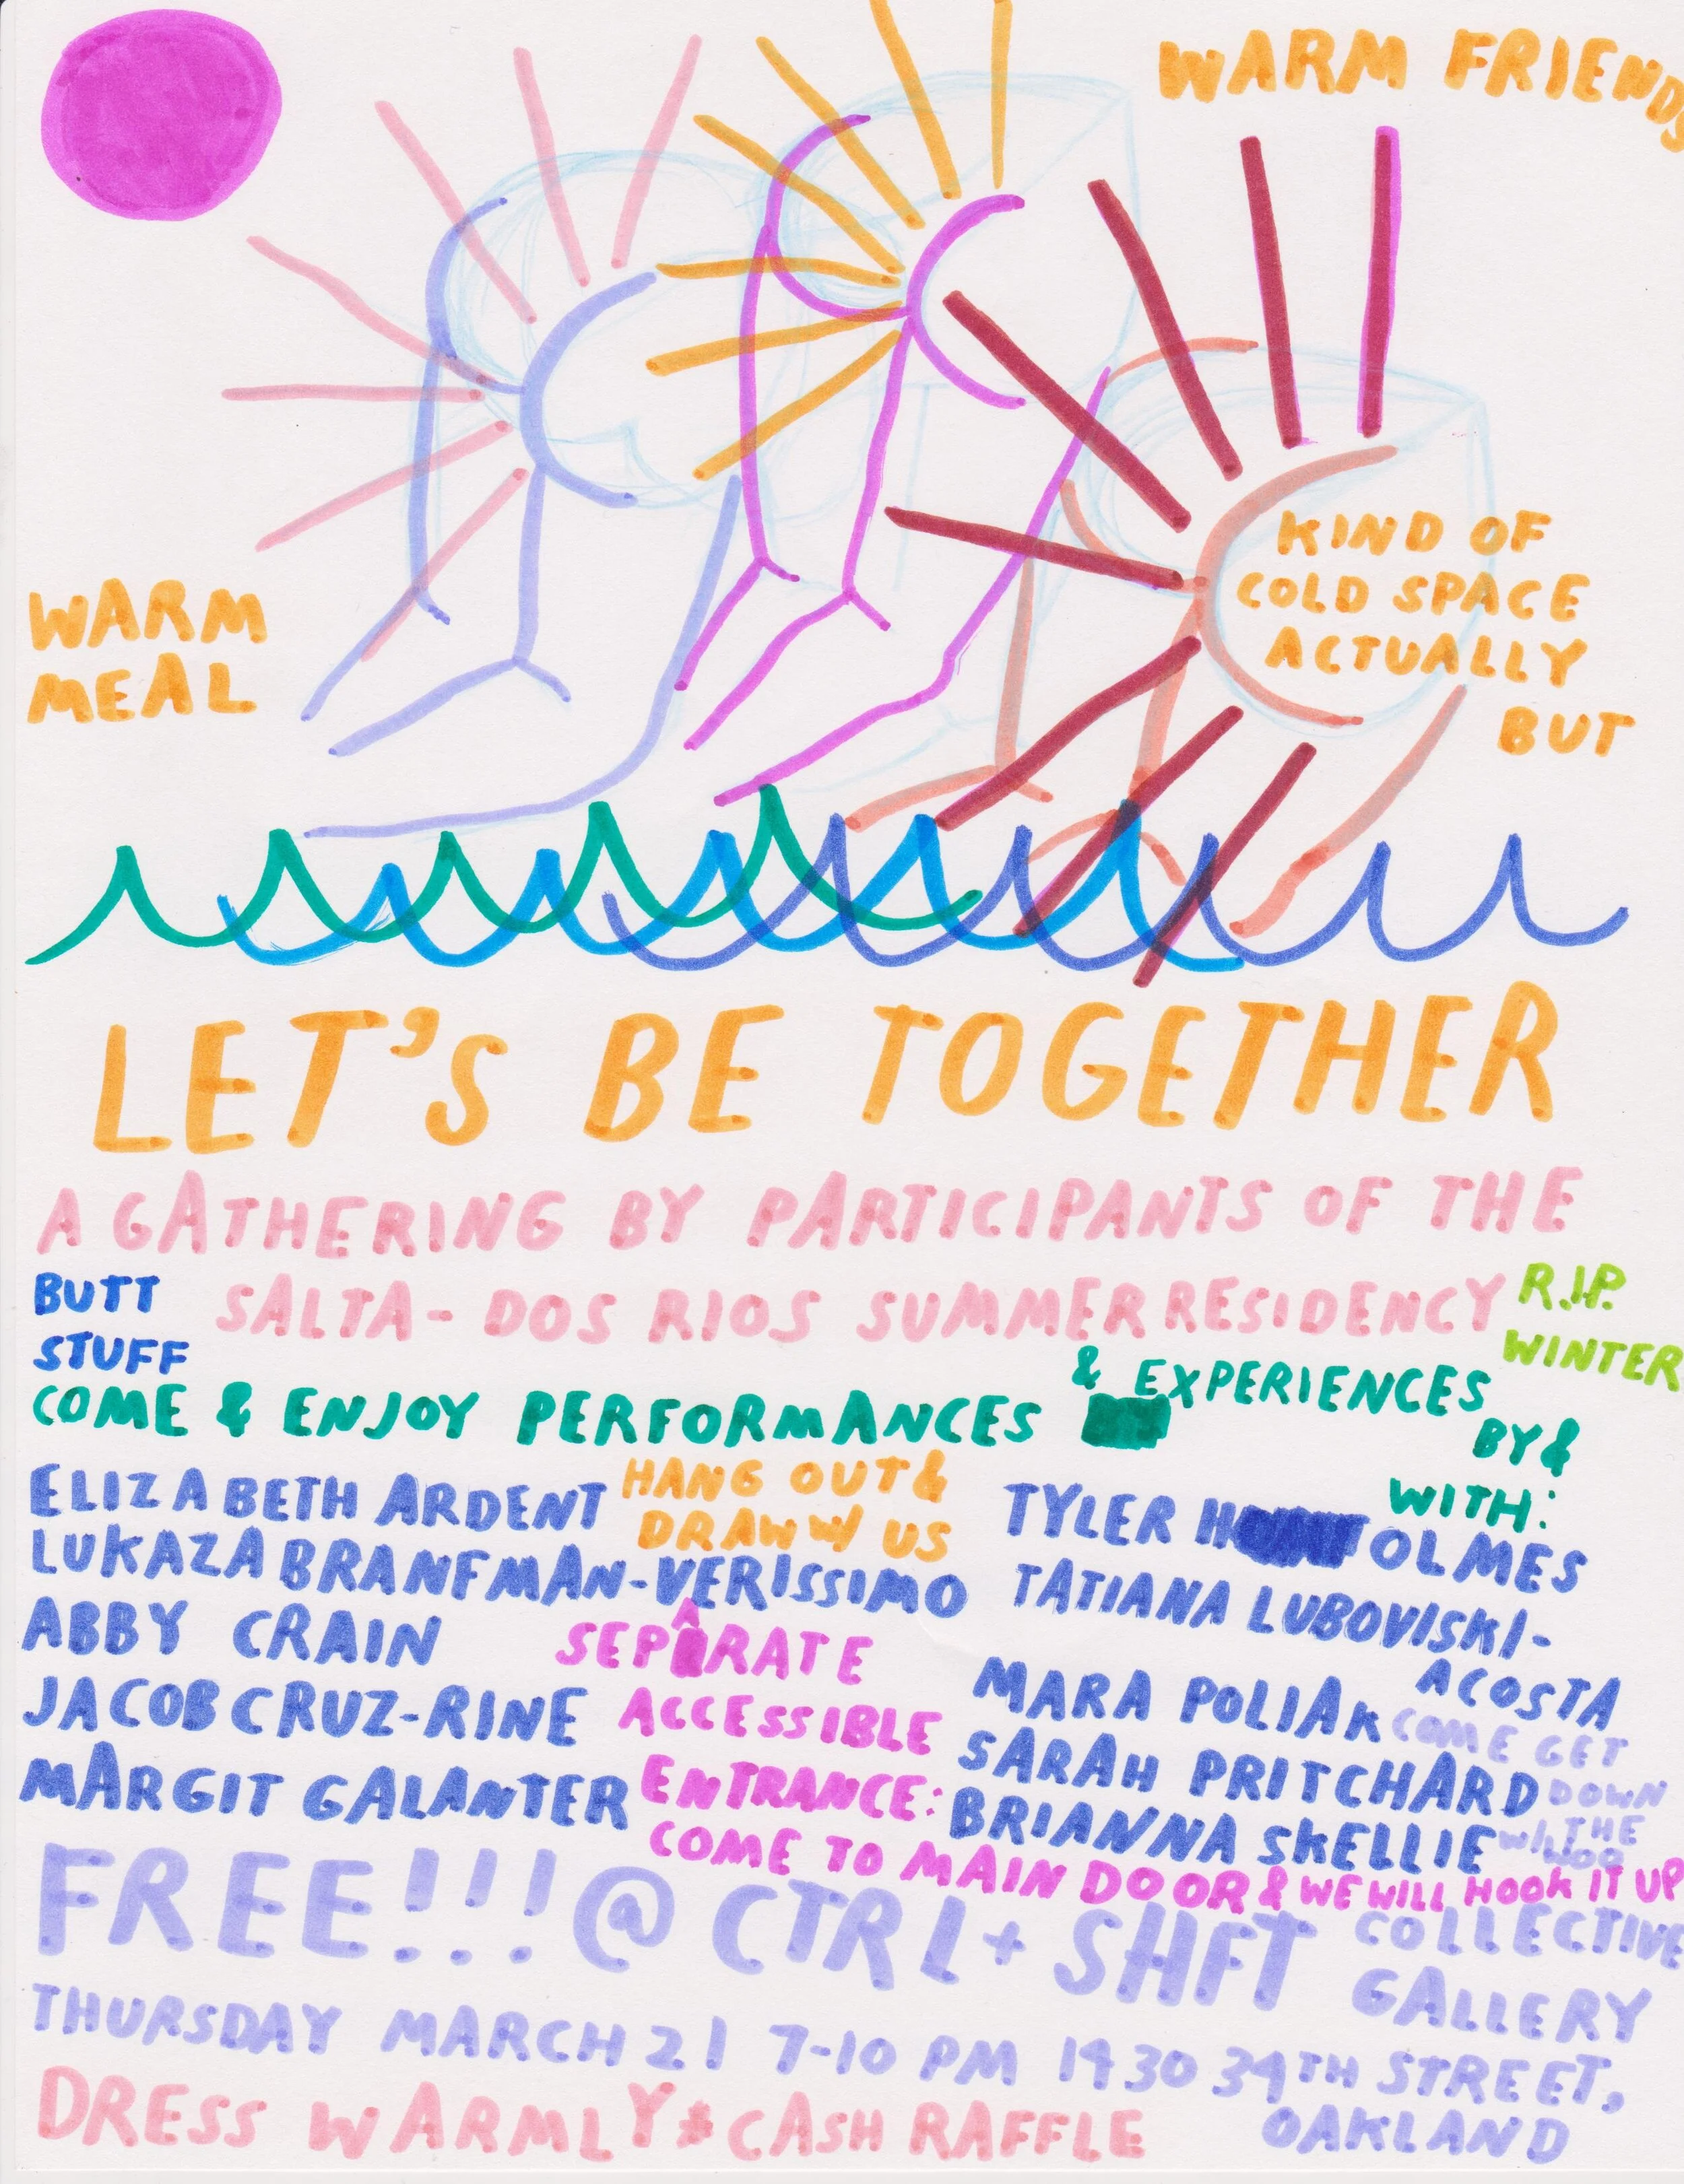 WARM FRIENDS
KIND OF
COLD SPACE
ACTUALLY
BUT
WARM
MEAL
LET'S BE TOGETHER
A GATHERING BY PARTICIPANTS OF THE
SALTA - DOS RIOS SUMMER RESIDENCY
BUTT
STUFF
R.I.P.
WINTER
COME & ENJOY PERFORMANCES
& EXPERIENCES
BY &
WITH:
ELIZABETH ARDENT
LUKAZA BRANFMAN-VERISSIMO
ABBY CRAIN
JACOB CRUZ-RINE
MARGIT GALANTER
HANG OUT &
DRAW W/ US
TYLER HOLMES
TATIANA LUBOVISKI-
ACOSTA
MARA POLIAK
SARAH PRITCHARD
BRIANNA SKELLIE
COME GET
DOWN
THE
SEPARATE
ACCESSIBLE
ENTRANCE:
COME TO MAIN DOOR & WE WILL HOOK IT UP
FREE!!! @ CTRL + SHFT COLLECTIVE
GALLERY
THURSDAY MARCH 21 7-10 PM 1430 34TH STREET,
OAKLAND
DRESS WARMLY * CASH RAFFLE